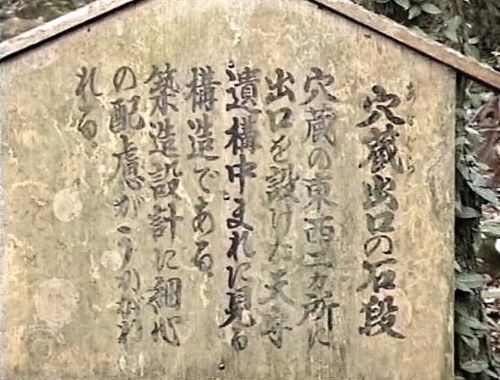 あなぐら
穴蔵出口の石段
穴蔵の東西二カ所に
出口を設けた天守
遺構中まれに見る
構造である。
築造設計に細心
の配慮がうかがわ
れる。